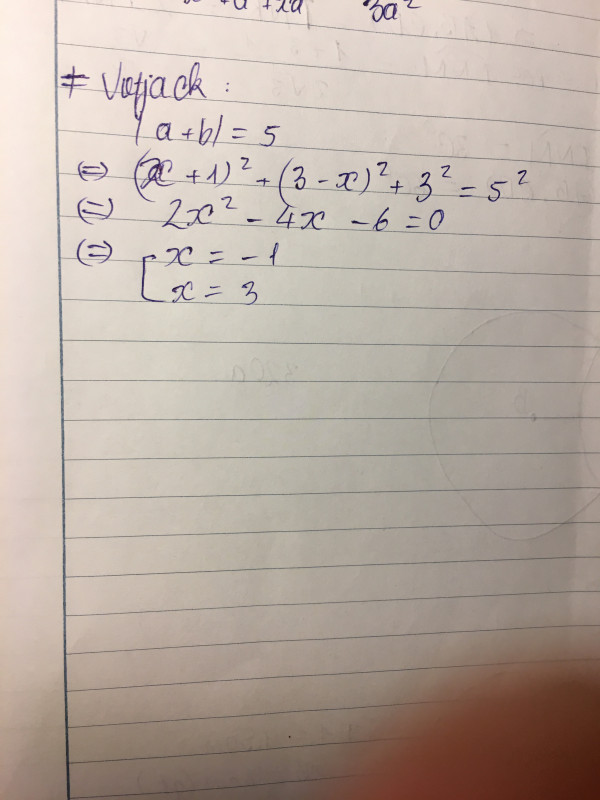 3a²
≠ Votjack :
|a+b| = 5
⇔ (x + 1)² + (3 - x)² + 3² = 5²
⇔ 2x² - 4x - 6 = 0
⇔ [ x = -1
x = 3